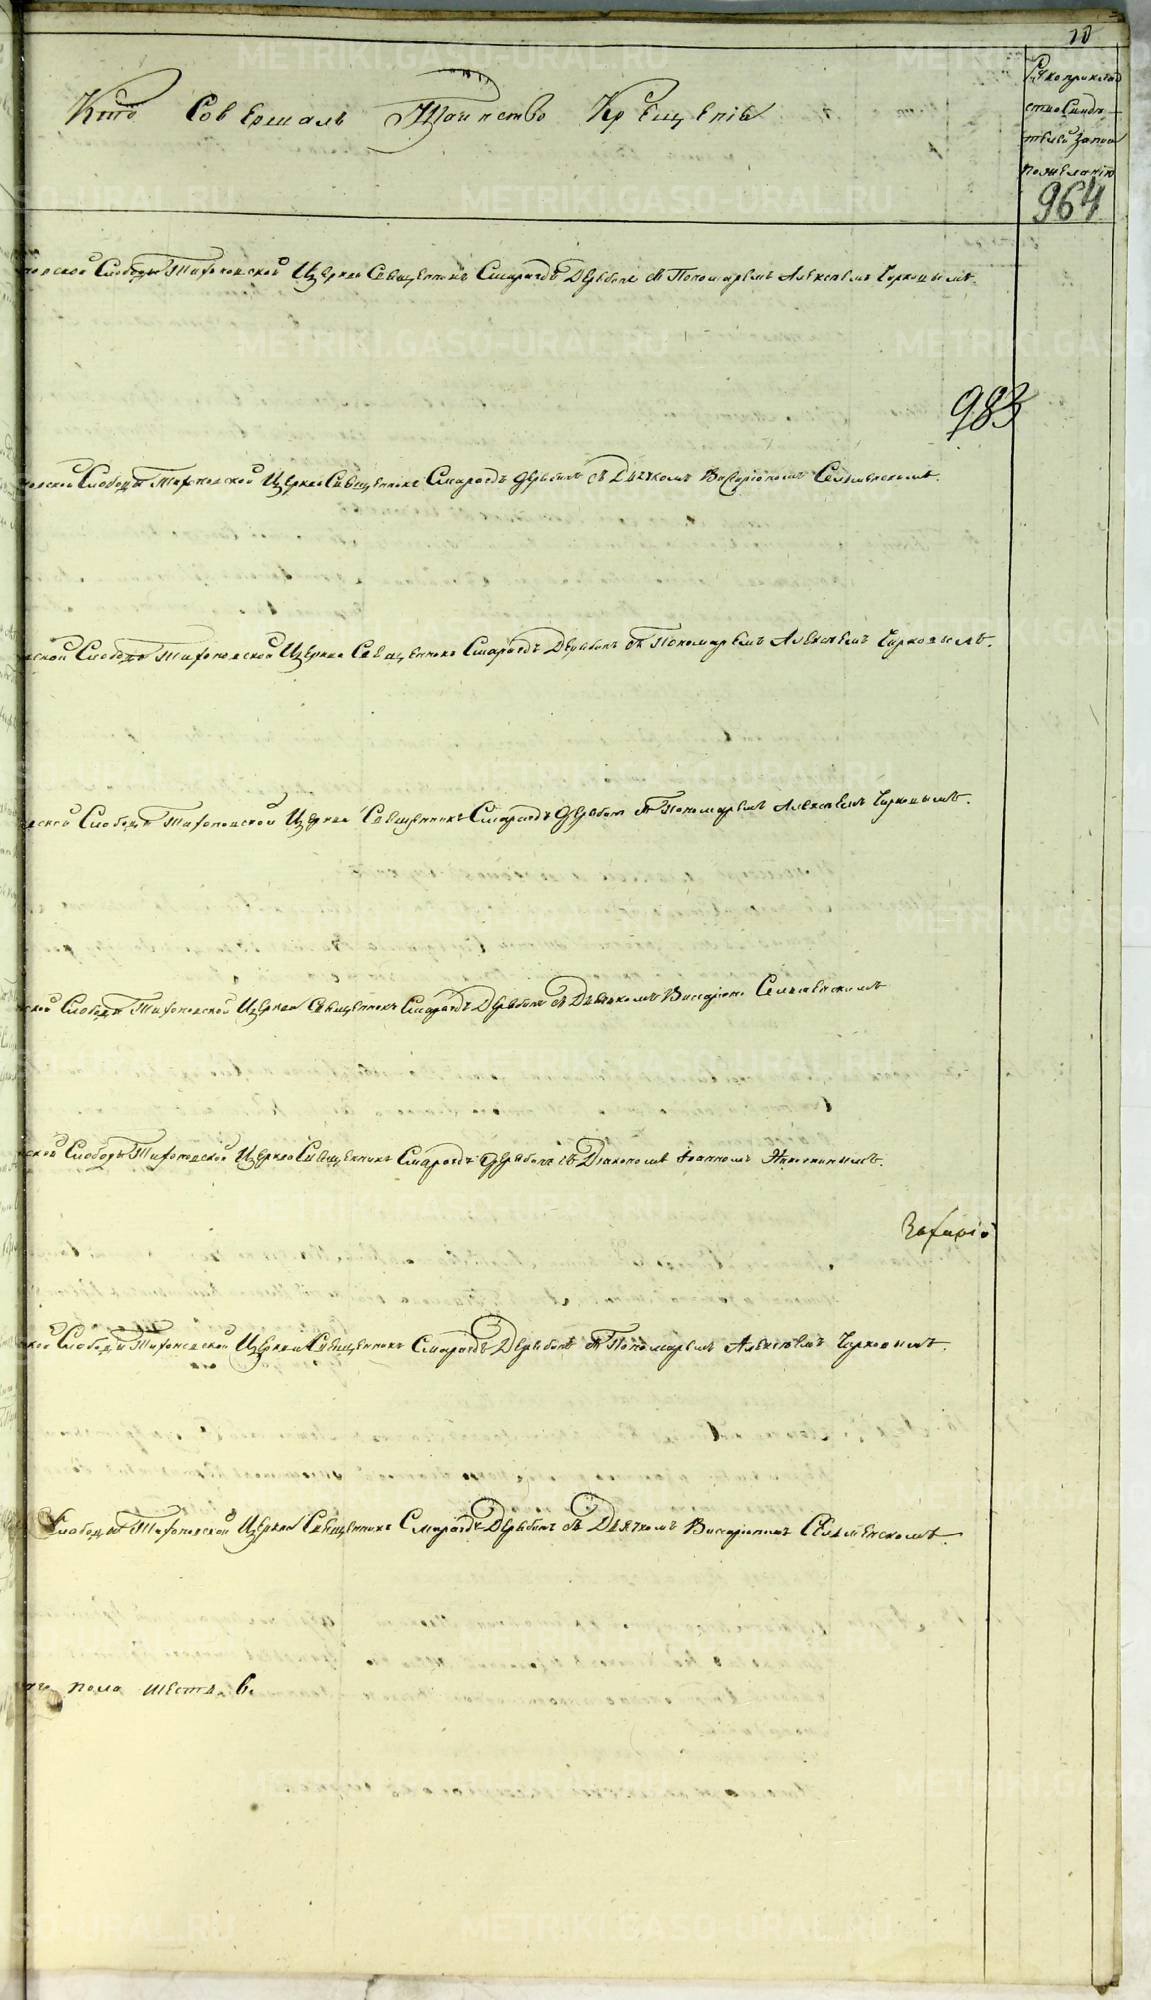 10
Кто Совершалъ Таинство Крещенія
Рукоприклад
ство Свидѣ
телей Запис
пожеланію
964
ской Слободы Тихоновской Церкви Священникъ Смарагдъ Дерябинъ съ Пономаремъ Алексѣемъ Чирковымъ.
983
ской Слободы Тихоновской Церкви Священникъ Смарагдъ Дерябинъ съ Дьячкомъ Висаріономъ Селменскимъ.
ской Слободы Тихоновской Церкви Священникъ Смарагдъ Дерябинъ съ Пономаремъ Алексѣемъ Чирковымъ.
ской Слободы Тихоновской Церкви Священникъ Смарагдъ Дерябинъ съ Пономаремъ Алексѣемъ Чирковымъ.
ской Слободы Тихоновской Церкви Священникъ Смарагдъ Дерябинъ съ Дьячкомъ Висаріоно Селменскимъ
ской Слободы Тихоновской Церкви Священникъ Смарагдъ Дерябинъ съ Діакономъ Іоанномъ
Захарій
ской Слободы Тихоновской Церкви Священникъ Смарагдъ Дерябинъ съ Пономаремъ Алексѣемъ Чирковымъ.
Слободы Тихоновской Церкви Священникъ Смарагдъ Дерябинъ съ Дьячкомъ Висаріономъ Селменскимъ.
го пола шесть. 6.
METRIKI.GASO-URAL.RU